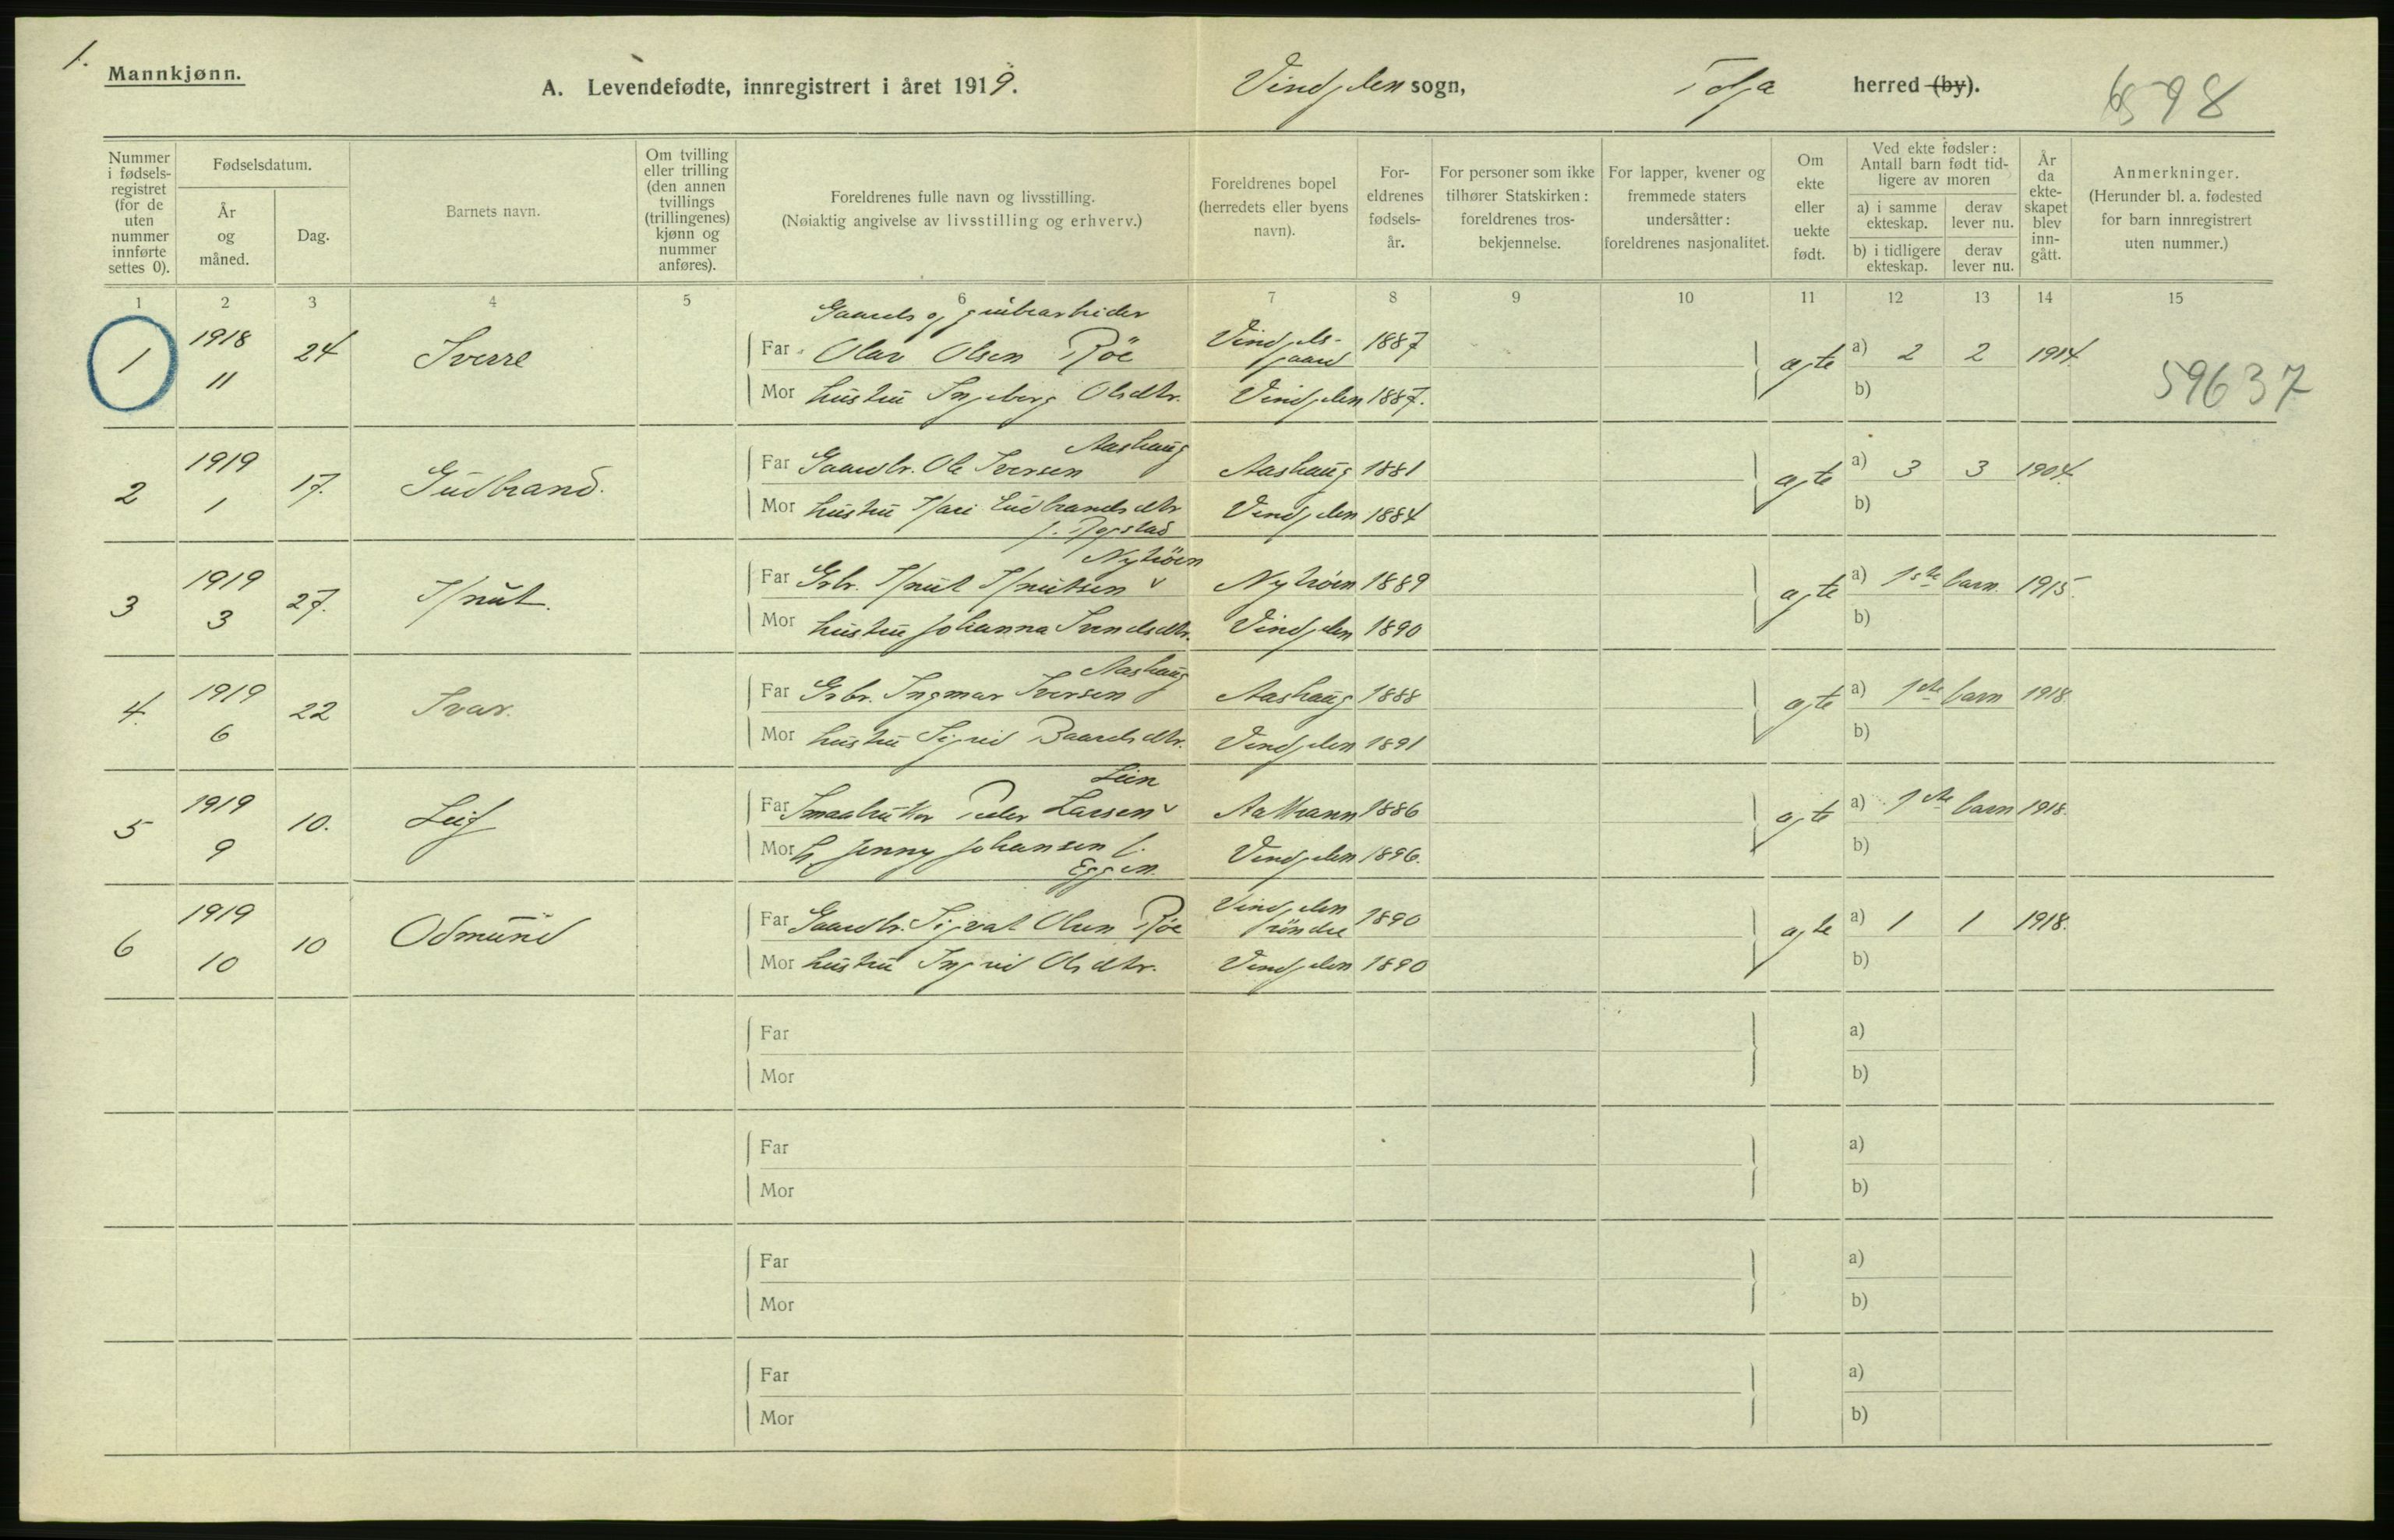 1.
Mannkjønn.
A. Levendefødte, innregistrert i året 1919.
Vingelen sogn,
Tolga herred (by).
6598
Nummer i fødsels-registret (for de uten nummer innførte settes 0).
Fødselsdatum.
År og måned.
Dag.
Barnets navn.
Om tvilling eller trilling (den annen tvillings (trillingenes) kjønn og nummer anføres).
Foreldrenes fulle navn og livsstilling.
(Nøiaktig angivelse av livsstilling og erhverv.)
Foreldrenes bopel (herredets eller byens navn).
For-eldrenes fødsels-år.
For personer som ikke tilhører Statskirken: foreldrenes tros-bekjennelse.
For lapper, kvener og fremmede staters undersåtter: foreldrenes nasjonalitet.
Om ekte eller uekte født.
Ved ekte fødsler: Antall barn født tid-ligere av moren
a) i samme ekteskap.
derav lever nu.
b) i tidligere ekteskap.
derav lever nu.
År da ekte-skapet blev inn-gått.
Anmerkninger.
(Herunder bl. a. fødested for barn innregistrert uten nummer.)
1 2 3 4 5 6 7 8 9 10 11 12 13 14 15
Gaards og grubearbeider
1 1918 11 24 Sverre
Far Olav Olsen Røe Vingels-gaard 1887
ægte a) 2 2 1914
Mor hustru Ingeborg Olsdtr. Vingelen 1887.
b)
59637
Aashaug
2 1919 1 17. Gudbrand.
Far Gaardbr. Ole Iversen Aashaug 1881
ægte a) 3 3 1904.
Mor hustru Kari Gudbrandsdtr Vingelen 1884
b)
f. Rogstad
Nytrøen
3 1919 3 27. Knut.
Far Gbr. Knut Knutsen Nytrøen 1889
ægte a) 1ste barn. 1915.
Mor hustru Johanna Svendsdtr. Vingelen 1890
b)
Aashaug
4. 1919 6 22 Ivar.
Far Gbr. Ingmar Iversen Aashaug 1888
ægte a) 1ste barn 1918.
Mor hustru Sigrid Baardsdtr. Vingelen 1891
b)
Lien
5 1919 9 10. Leif
Far Smaabruker Peder Larsen 1886
ægte a) 1ste barn 1918.
Mor h. Jenny Johansen f. Vingelen 1896.
b)
Eggen.
6 1919 10 10 Odmund
Far Gaardbr. Sigvat Olsen Røe Vingelen 1890
ægte a) 1 1 1918.
Mor hustru Ingrid Olsdtr. Vingelen 1890
b)
Far a)
Mor b)
Far a)
Mor b)
Far a)
Mor b)
Far a)
Mor b)